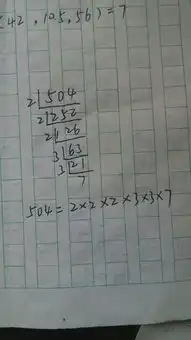 42, 105, 56) = 7
2 504
2 252
2 126
3 63
3 21
7
504 = 2×2×2×3×3×7